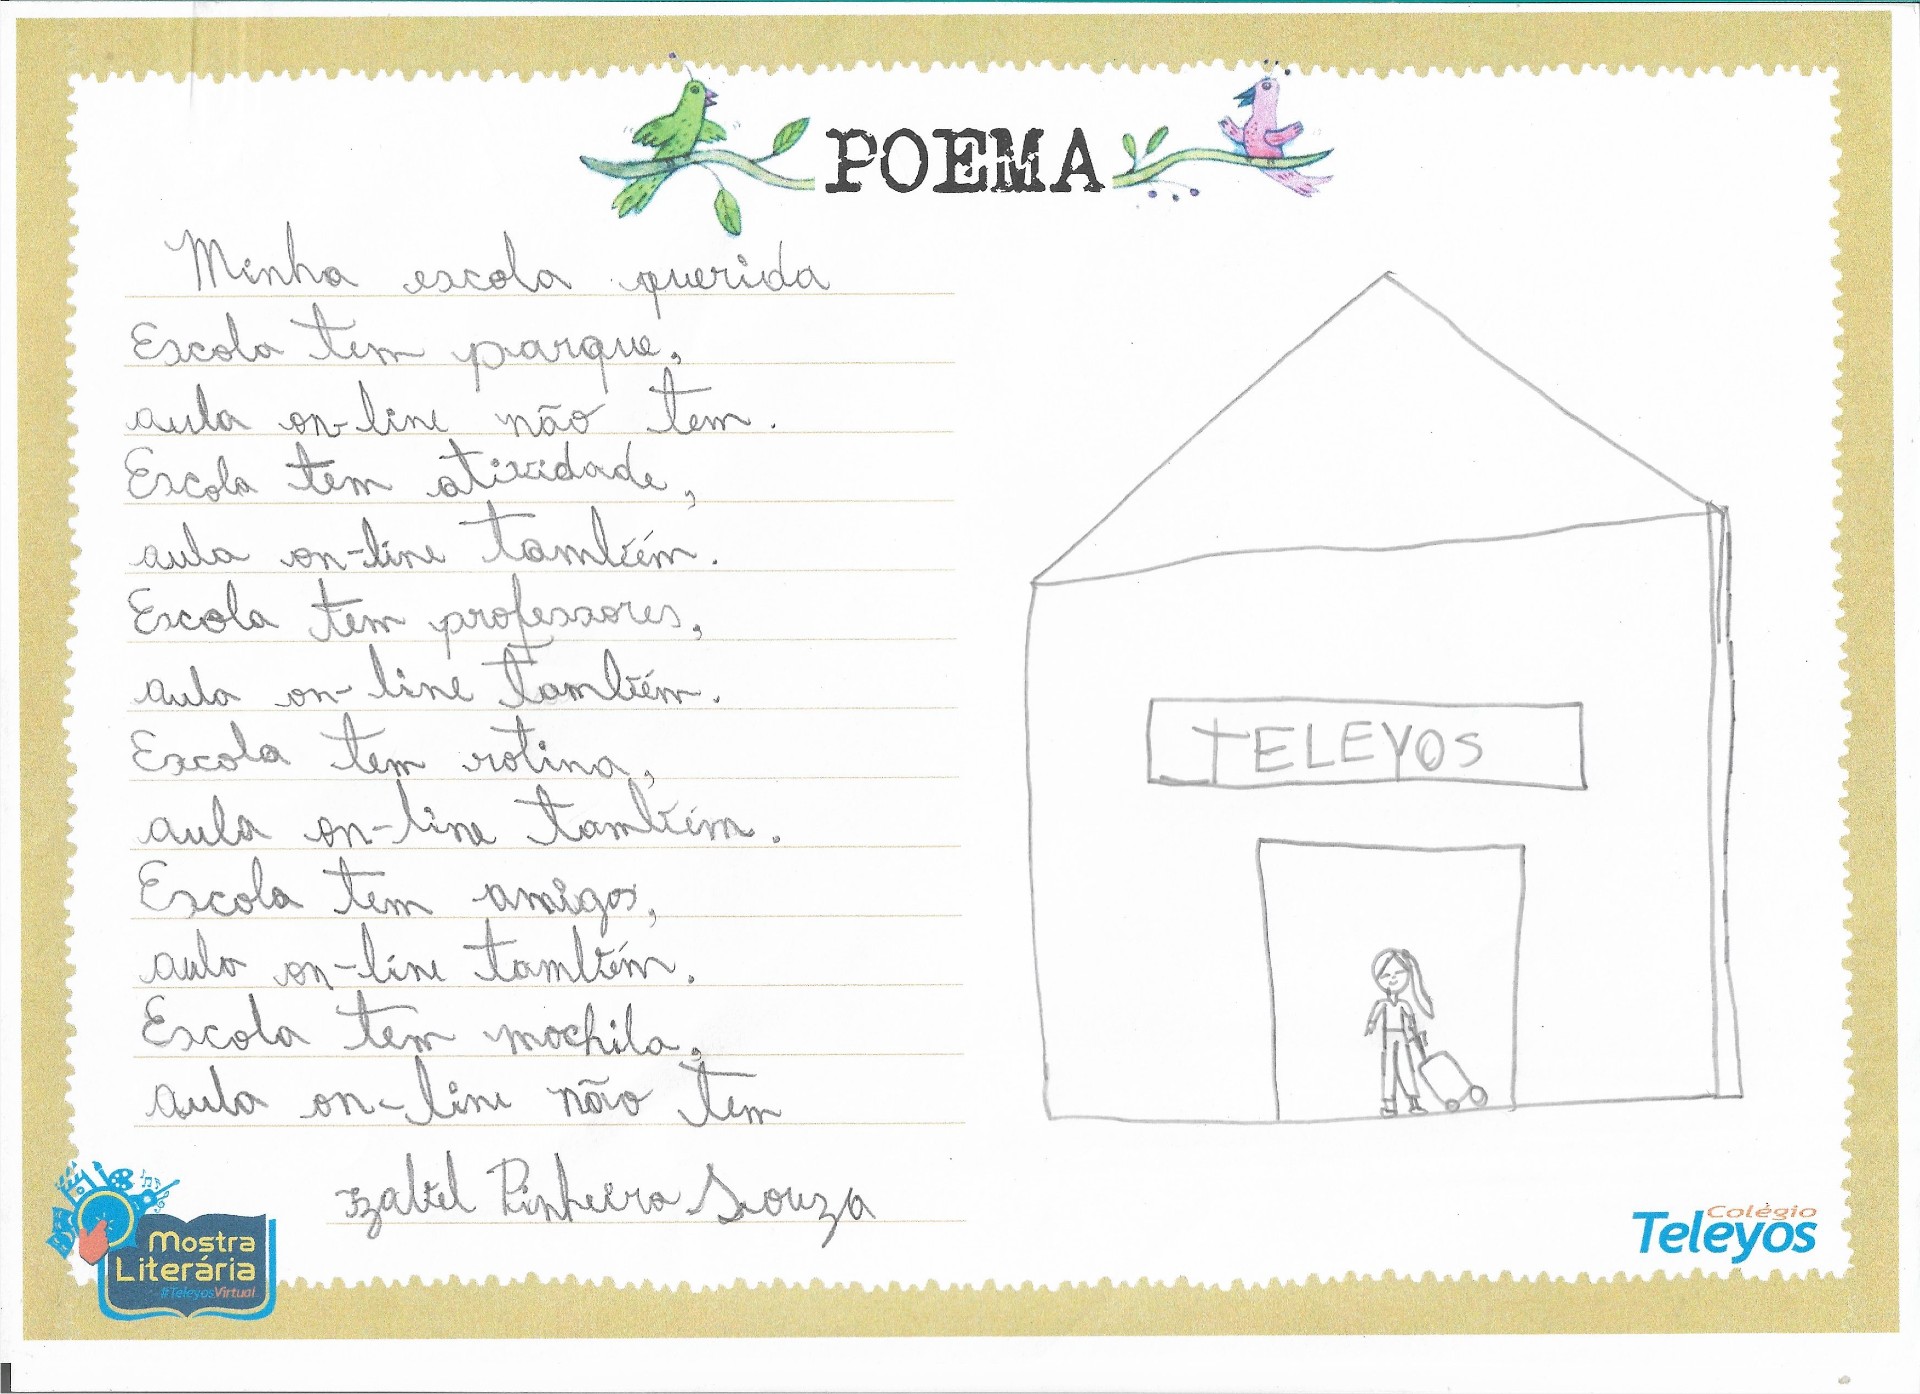 POEMA
Minha escola querida
Escola tem parque,
aula on-line não tem.
Escola tem atividade,
aula on-line também.
Escola tem professores,
aula on-line também.
Escola tem rotina,
aula on-line também.
Escola tem amigos,
aula on-line também.
Escola tem mochila,
aula on-line não tem
Izabel Pinheiro Souza
TELEYOS
Mostra
Literária
#TeleyosVirtual
Colégio
Teleyos